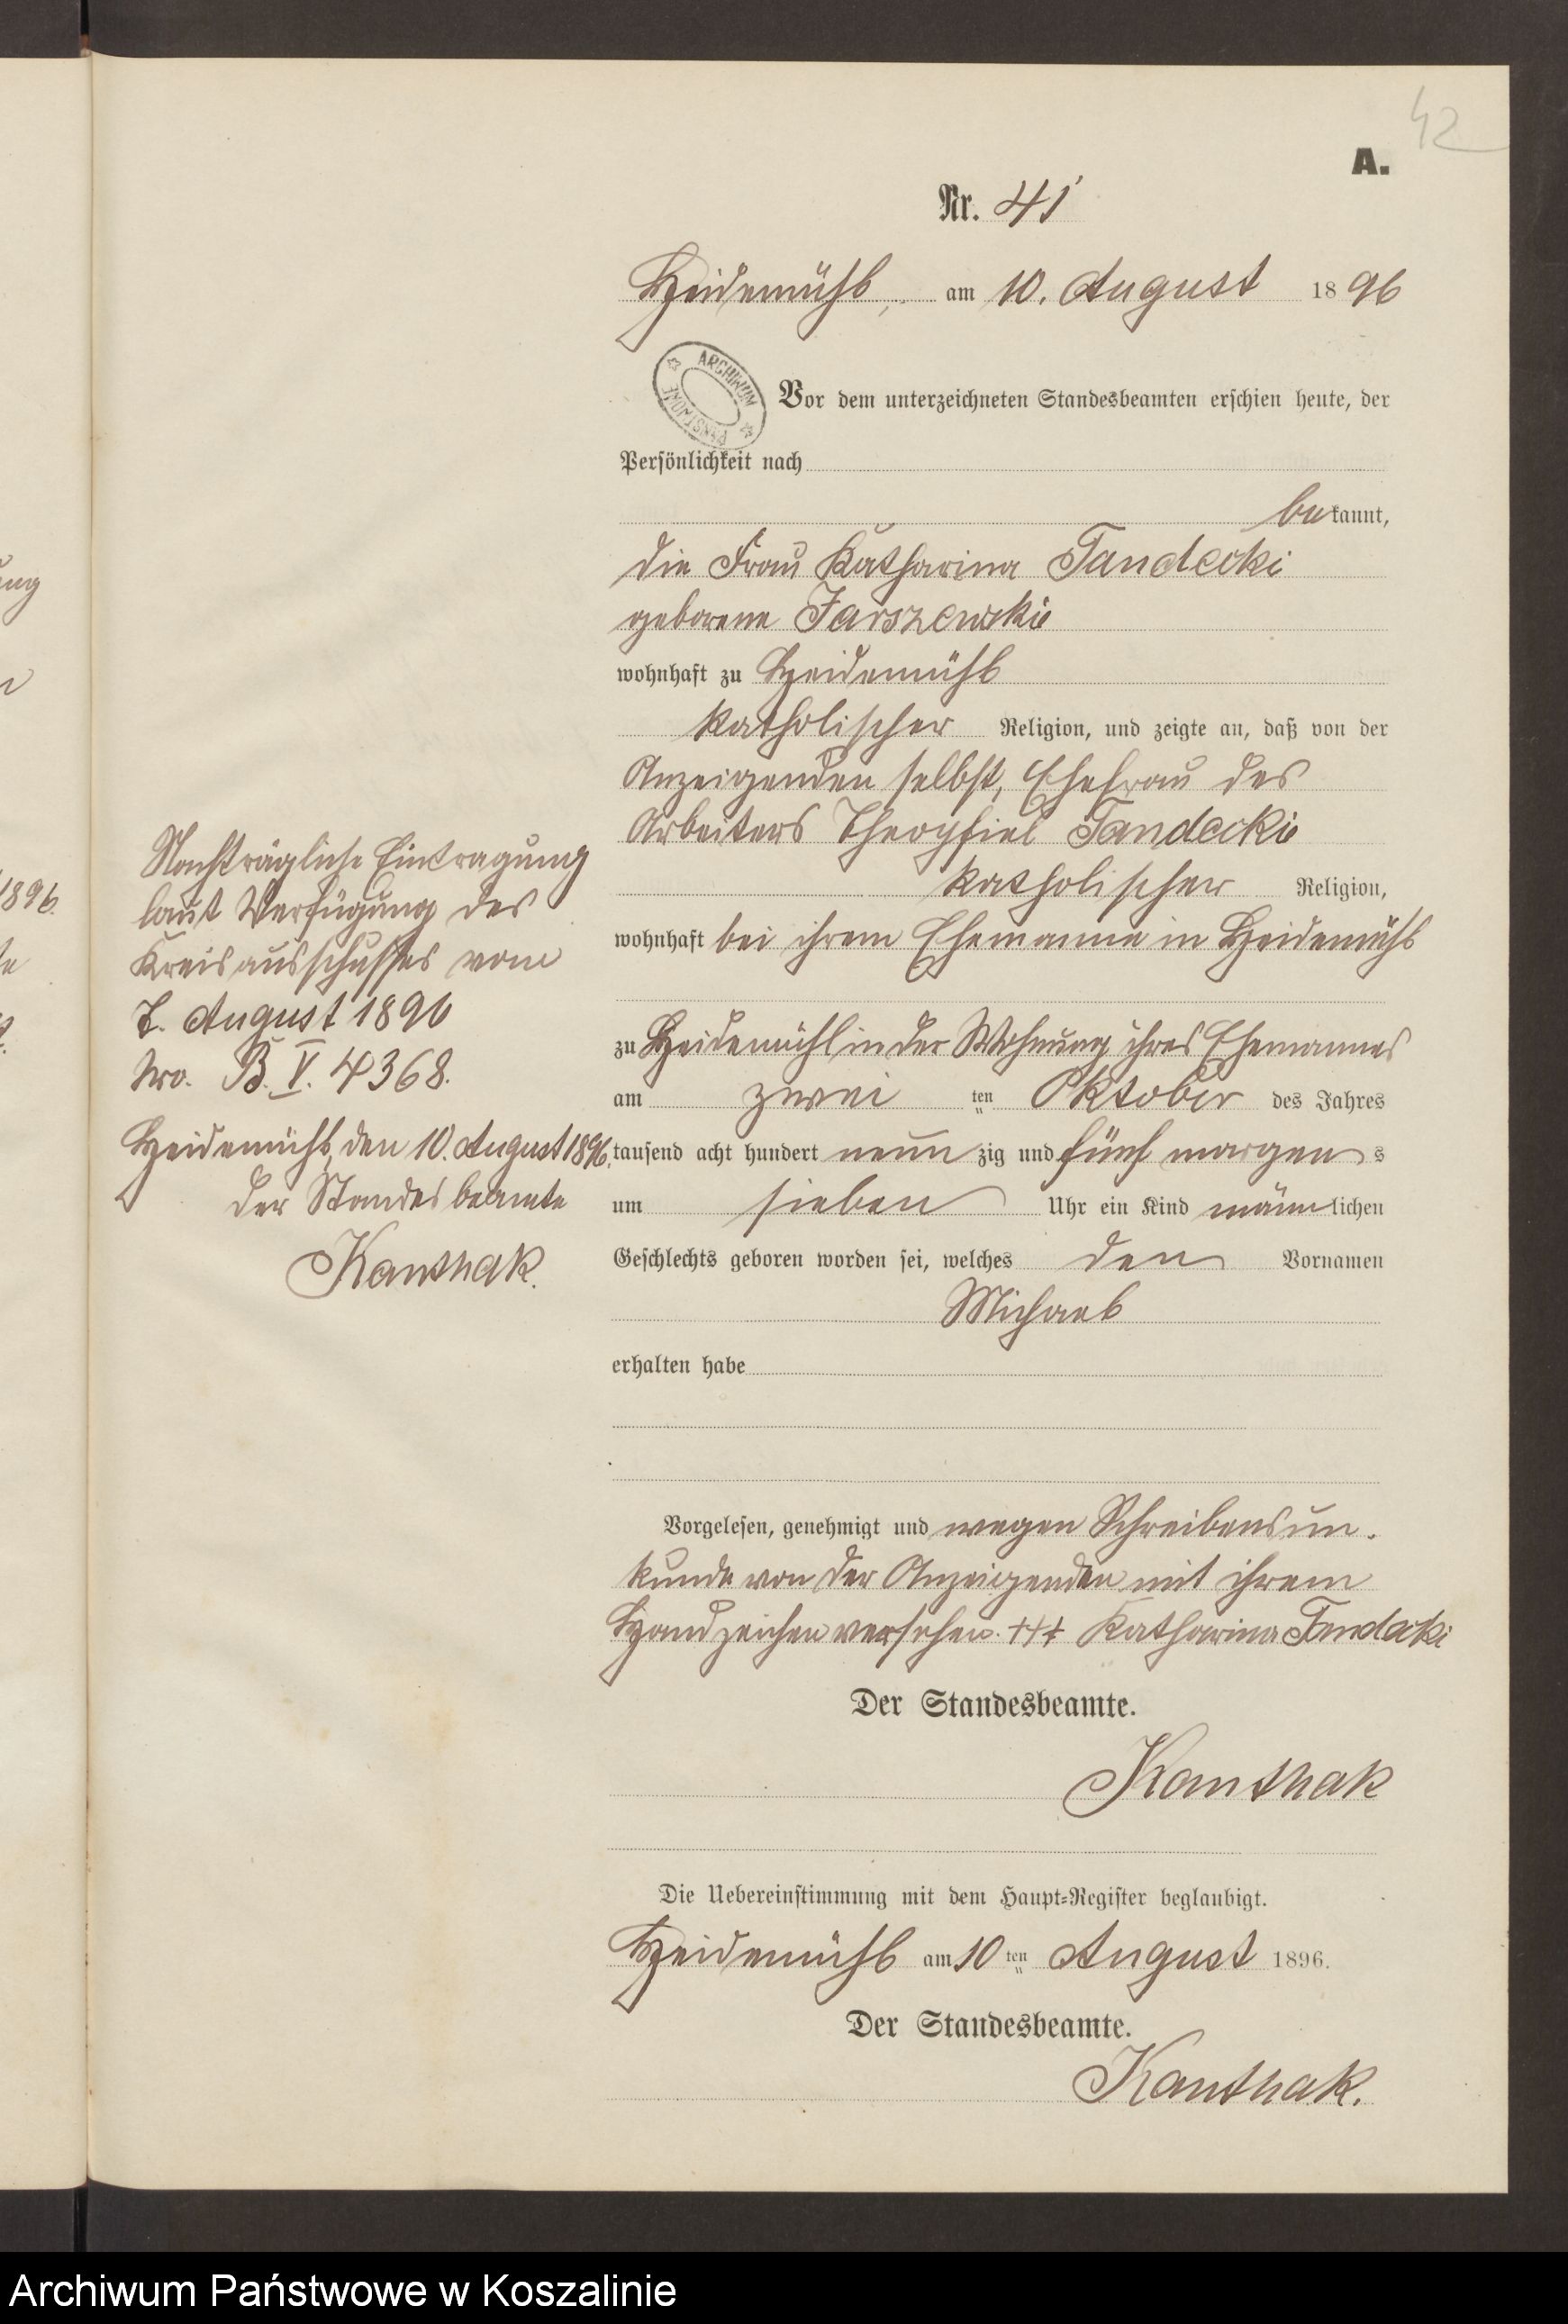 42
A.
Nr. 41
Heidemühl, am 10. August 1896
ARCHIWUM PAŃSTWOWE
Vor dem unterzeichneten Standesbeamten erschien heute, der
Persönlichkeit nach
bekannt,
die Frau Katharina Tandecki
geborene Jarszewski
wohnhaft zu Heidemühl
katholischer Religion, und zeigte an, daß von der
Anzeigenden selbst, Ehefrau des
Arbeiters Theophiel Tandecki
katholischer Religion,
wohnhaft bei ihrem Ehemanne in Heidemühl
zu Heidemühl in der Wohnung ihres Ehemannes
am zwei ten Oktober des Jahres
tausend acht hundert neun zig und fünf morgens
um sieben Uhr ein Kind männlichen
Geschlechts geboren worden sei, welches den Vornamen
Michael
erhalten habe
Vorgelesen, genehmigt und wegen Schreibensun-
kunde von der Anzeigenden mit ihrem
Handzeichen versehen. +++ Katharina Tandecki
Der Standesbeamte.
Kanthak
Die Uebereinstimmung mit dem Haupt-Register beglaubigt.
Heidemühl am 10ten August 1896.
Der Standesbeamte.
Kanthak.
Nachträgliche Eintragung
laut Verfügung des
Kreisausschusses vom
August 1896
Nro. B. V. 4368.
Heidemühl, den 10. August 1896.
der Standesbeamte
Kanthak.
1896.
Archiwum Państwowe w Koszalinie